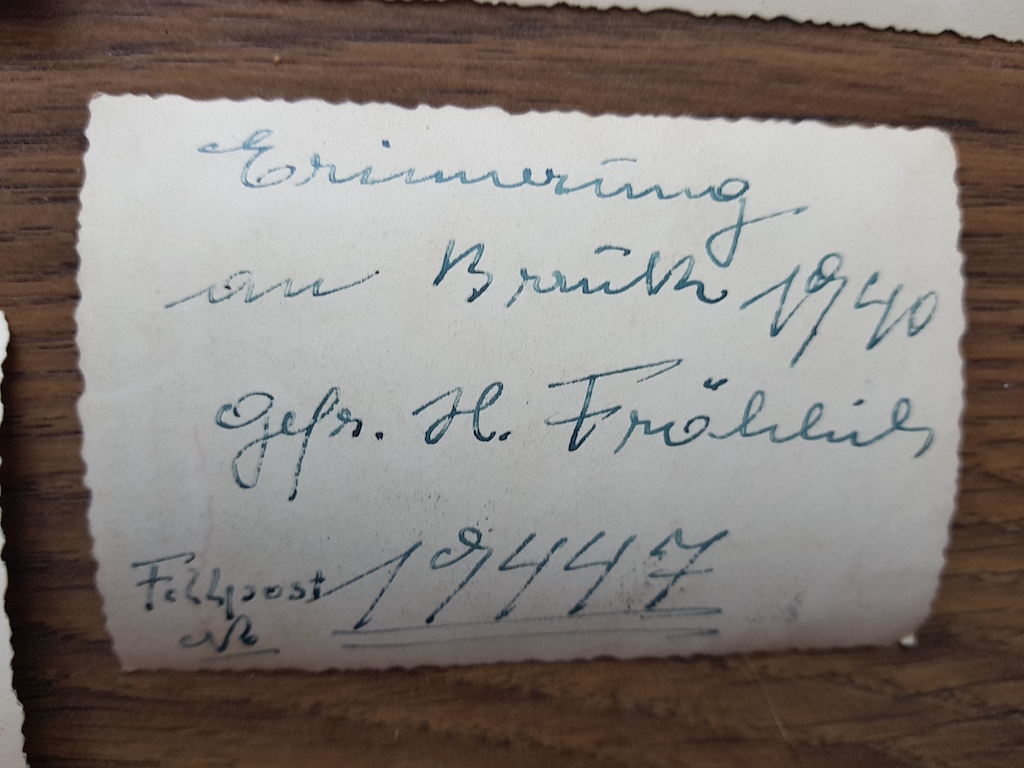 Erinnerung
an 1940
Gefr. H. Fröhlich
Feldpost 19447
Nr